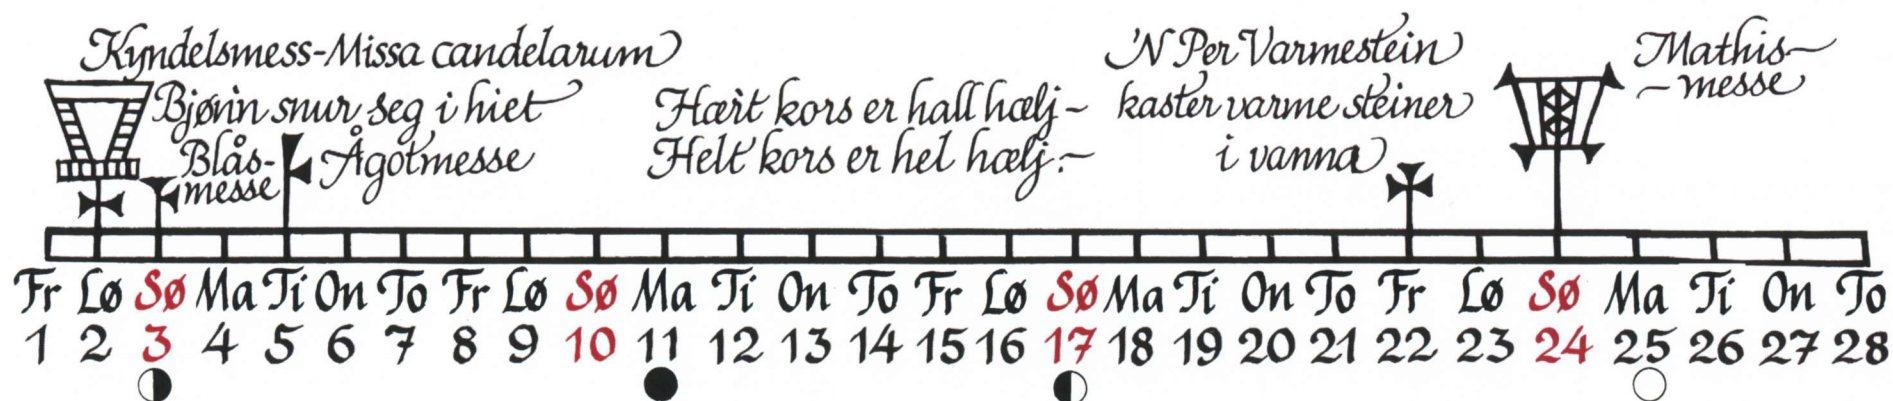 Kyndelsmess-Missa candelarum
Bjørin snur seg i hiet
Blås-
messe
Ågotmesse
Hært kors er hall hælj-
Helt kors er hel hælj.-
'N Per Varmestein
kaster varme steiner
i vanna
Mathis-
-messe
Fr Lø Sø Ma Ti On To Fr Lø Sø Ma Ti On To Fr Lø Sø Ma Ti On To Fr Lø Sø Ma Ti On To
1 2 3 4 5 6 7 8 9 10 11 12 13 14 15 16 17 18 19 20 21 22 23 24 25 26 27 28